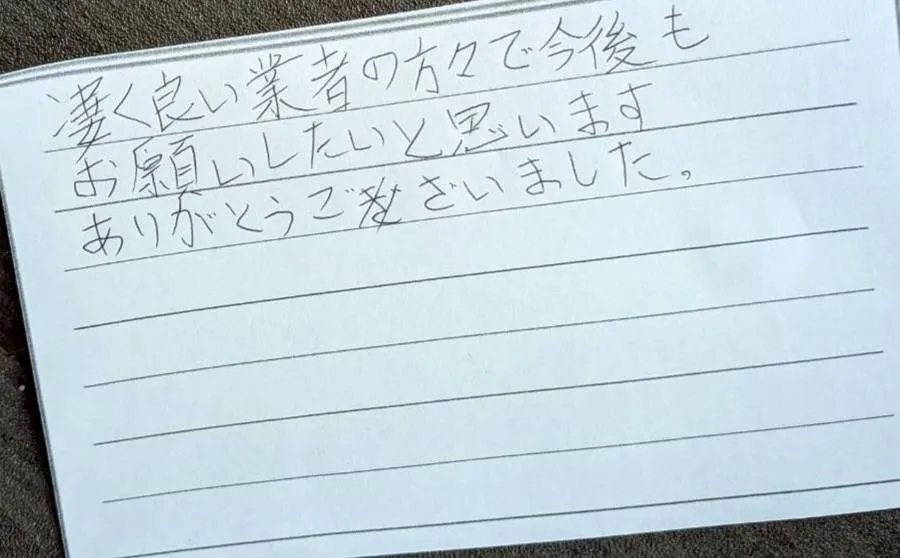 凄く良い業者の方々で今後も
お願いしたいと思います
ありがとうございました。